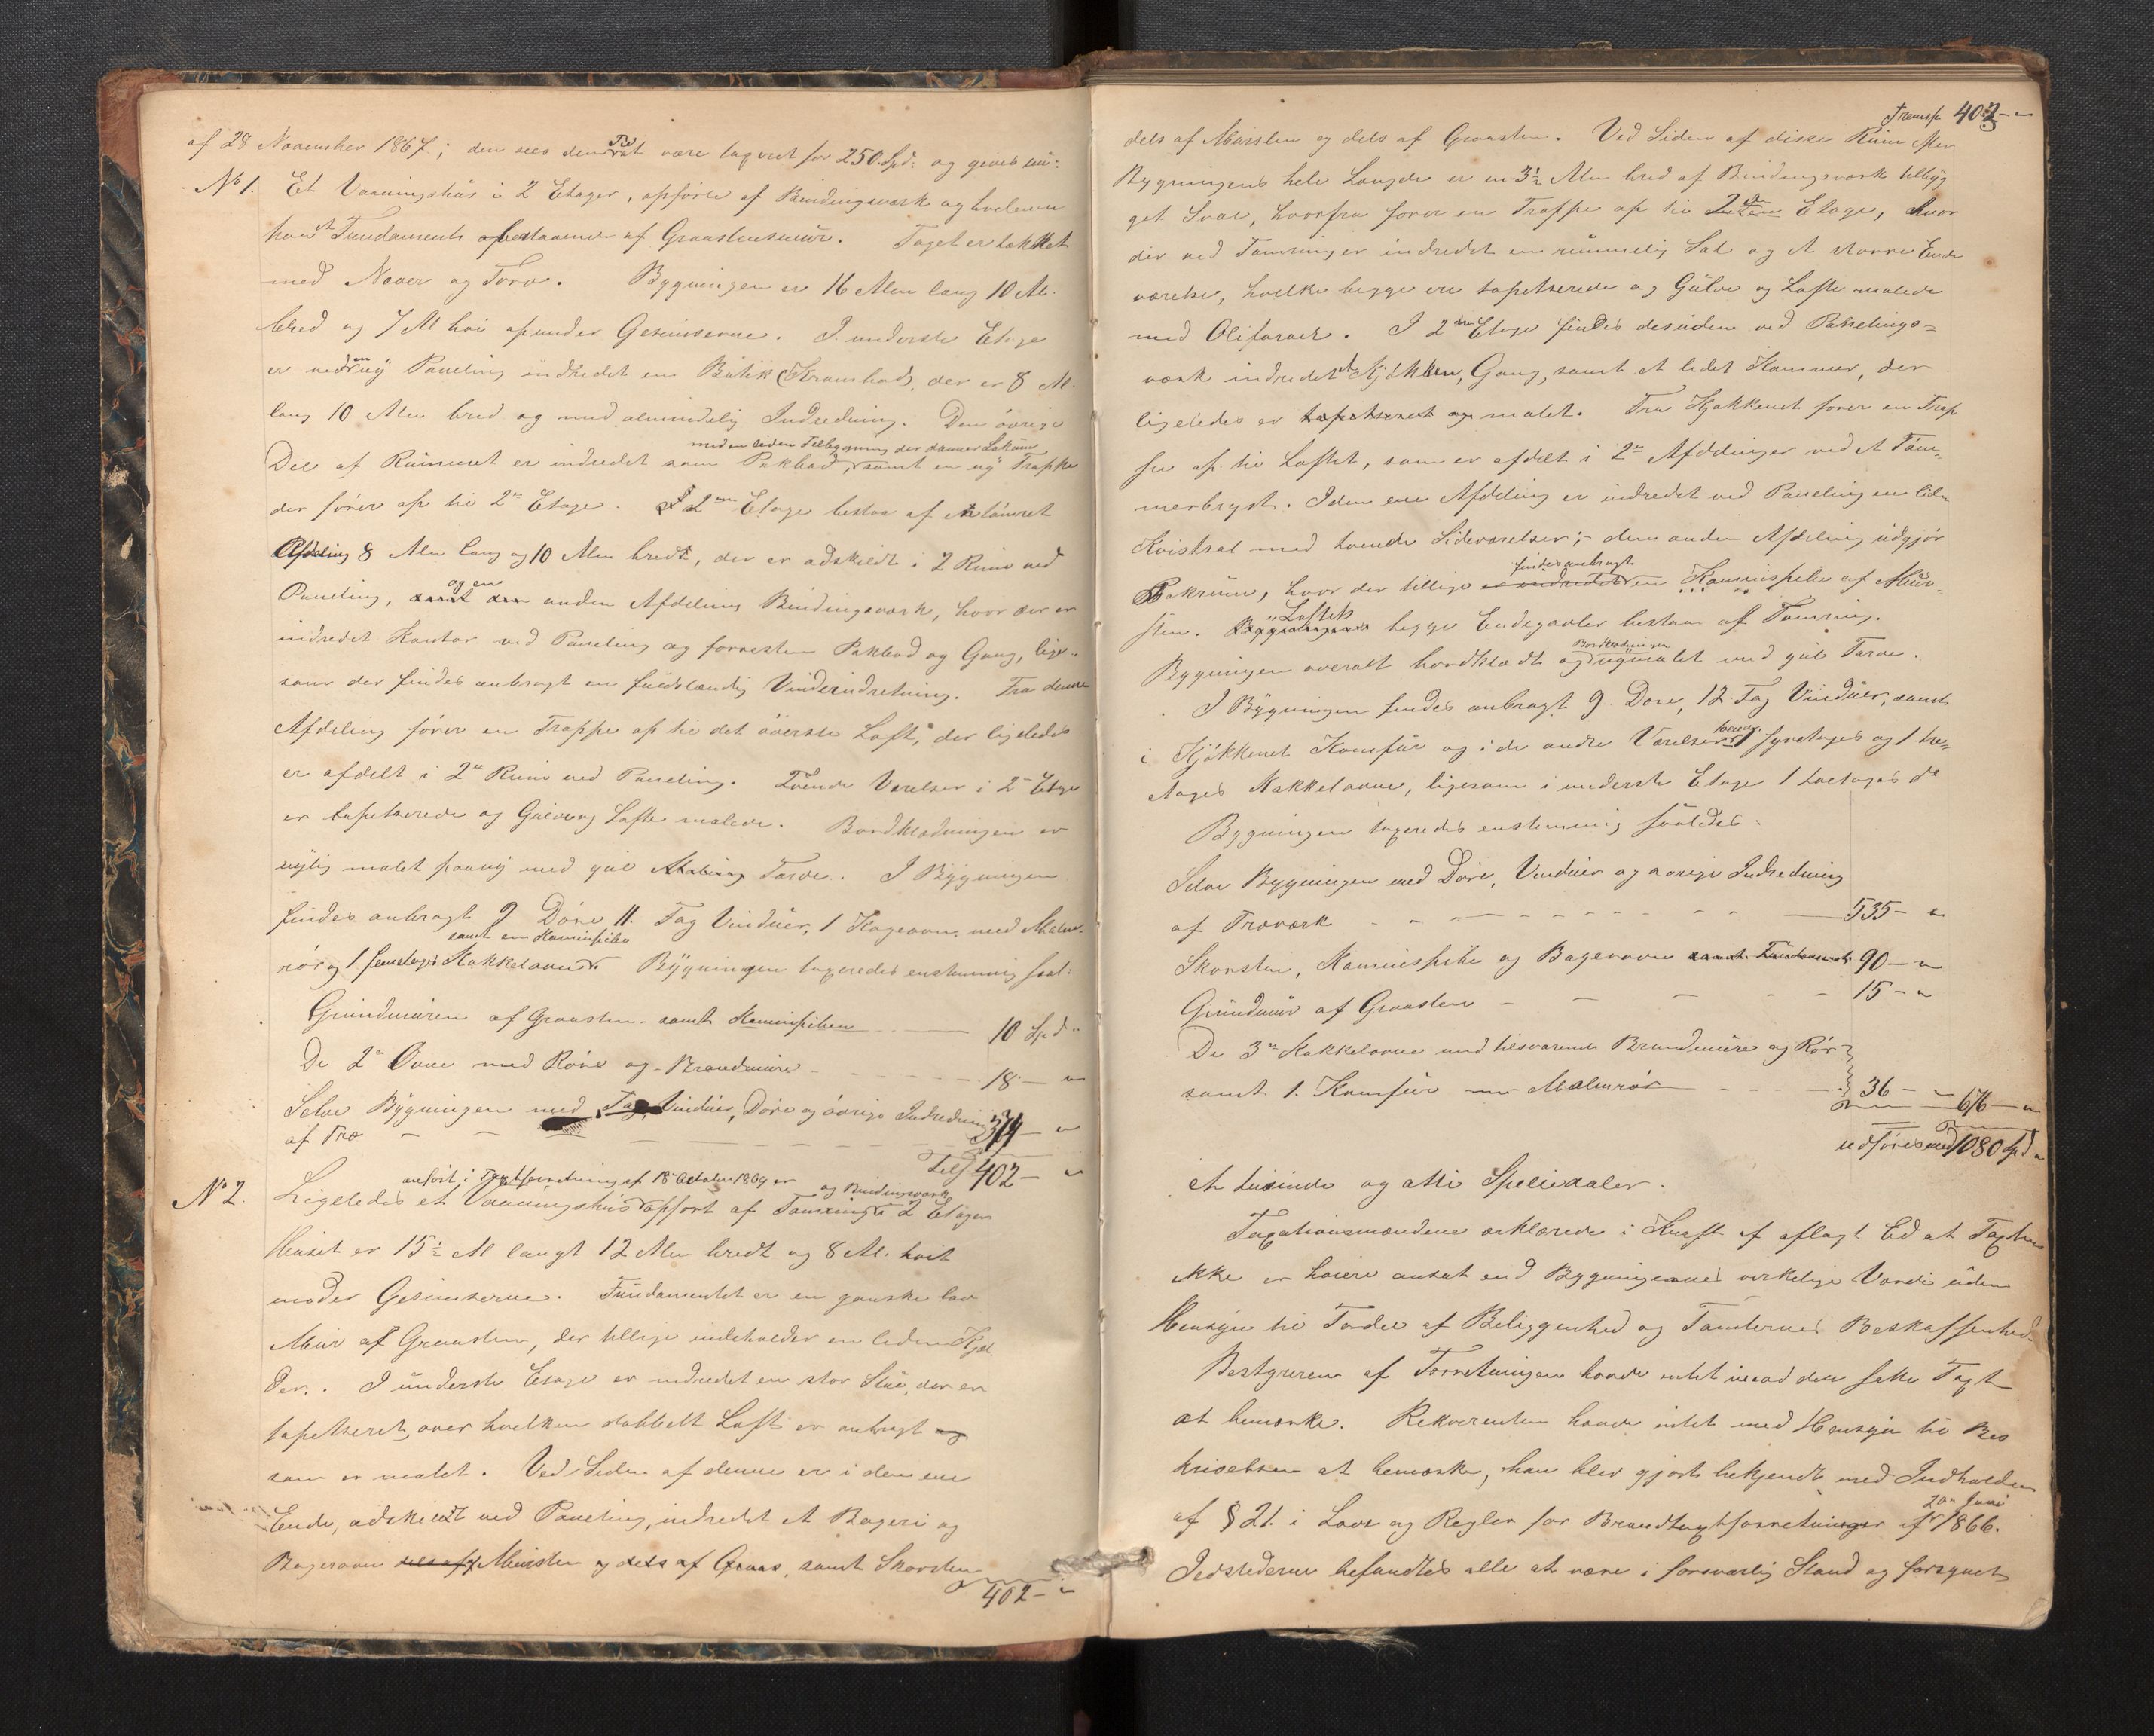 af 28 November 1867; den sees den Tid være taxeret for 250 Spd: og gives nu:
No 1. Et Vaaningshus i 2 Etager, opførte af Bindingsværk og hvilende
paa et Fundament bestaaende af Graasteensmur. Taget er tækket
med Næver og Torv. Bygningen er 16 Alen lang 10 Al.
bred og 7 Al høi op under Gesimserne. I underste Etage
er ved en ny Paneling indredet en Butik (Krambod), der er 8 Al.
lang 10 Alen bred og med almindelig Indredning. Den øvrige
med en liden Tilbygning der danner Lokum
Del af Rummet er indredet som Pakbod, samt en ny Trappe
der fører op til 2n Etage. I 2en Etage bestaar af et tømret
Afdeling 8 Alen lang og 10 Alen bredt, der er adskildt i 2 Rum ved
Paneling, og en anden Afdeling Bindingsværk, hvor der er
indredet Kontor ved Paneling og forresten Pakbod og Gang, lige-
som der findes anbragt en fuldstændig Vindeindretning. Fra denne
Afdeling fører en Trappe op til det øverste Loft, der ligeledes
er afdelt i 2de Rum ved Paneling. Tvende Værelser i 2n Etage
er tapetserede og Gulve og Lofte malede. Bordklædningen er
nylig malet paany med gul Farve. I Bygningen
findes anbragt 9 Døre 11 Fag Vinduer, 1 Kogeovn med Malm-
samt en Kaminpibe
rør og 1 femetages Kakkelovn. Bygningen taxeredes enstemmig saal:
Grundmuren af Graasten samt Kaminpiben 10 Spd "
De 2de Ovne med Rør og Brandmure 18 - "
Selve Bygningen med Vinduer, Døre og øvrige Indredning
af Træ 374 - "
Tils 402 - "
anført i Taxtforretning af 18 October 1864 er og Bindingsværk
No 2. Ligeledes et Vaaningshus opført af Tømring i 2 Etager
Huset er 15½ Al langt 12 Alen bredt og 8 Al. høit
under Gesimserne. Fundamentet er en ganske lav
Mur af Graasten, der tillige indeholder en liden Kjæl
der. I underste Etage er indredet en stor Stue, der er
tapetseret, over hvilken dobbelt Loft er anbragt og
som er malet. Ved Siden af denne er i den ene
Ende, adskildt ved Paneling, indredet et Bageri og
Bagerovn dels af Mursten og dels af Graas, samt Skorsten
402 - "
Transp. 402 - "
dels af Mursten og dels af Graasten. Ved Siden af disse Rum efter
Bygningens hele Længde er en 3½ Alen bred af Bindingsværk tilbyg
get Sval, hvorfra fører en Trappe op til 2den Etage, hvor
der ved Tømring er indredet en rummelig Sal og et større Ende
værelse, hvilke begge ere tapetserede og Gulve og Lofte malede
med Oliefarver. I 2den Etage findes desuden ved Panelings-
værk indredet et Kjøkken, Gang, samt et lidet Kammer, der
ligeledes er tapetseret og malet. Fra Kjøkkenet fører en Trap
pe op til Loftet, som er afdelt i 2de Afdelinger ved et Tøm-
merbryst. I den ene Afdeling er indredet ved Paneling en liden
Kvistsal med tvende Sideværelser; den anden Afdeling udgjør
findes anbragt
Pakrum, hvor der tillige er indredet en Kaminpibe af Mur-
sten. Loftets begge Endegavler bestaar af Tømring.
Bordklædningen
Bygningen overalt bordklædt og nymalet med gul Farve.
I Bygningen findes anbragt 9 Døre, 12 Fag Vinduer, samt
i Kjøkkenet Komfur og i de andre Værelser 1 fyretages og 1 tre-
etages Kakkelovne, ligesom i underste Etage 1 toetages do
Bygningen taxeredes enstemmig saaledes:
Selve Bygningen med Døre, Vinduer og øvrige Indredning
af Træværk 535 - "
Skorsten, Kaminpibe og Bagerovn samt Fundament 90 - "
Grundmur af Graasten 15 - "
De 3de Kakkelovne med tilsvarende Brandmure og Rør
samt 1 Komfur med Malmrør 36 - " 676 - "
udføres med 1080 Spd "
et tusinde og otti Speciedaler.
Taxationsmændene erklærede i Kraft af aflagt Ed at Taxten
ikke er høiere ansat end Bygningernes virkelige Værdi uden
Hensyn til Fordel af Beliggenhed og Tomternes Beskaffenhed.
Bestyreren af Forretningen havde intet imod den satte Taxt
at bemærke. Rekvirenten havde intet med Hensyn til Bes
krivelsen at bemærke, han blev gjort bekjendt med Indholden
20n Juni
af § 21 i Love og Regler for Brandtaxtforretninger af 1866.
Ildstederne befandtes alle at være i forsvarlig Stand og forsynet